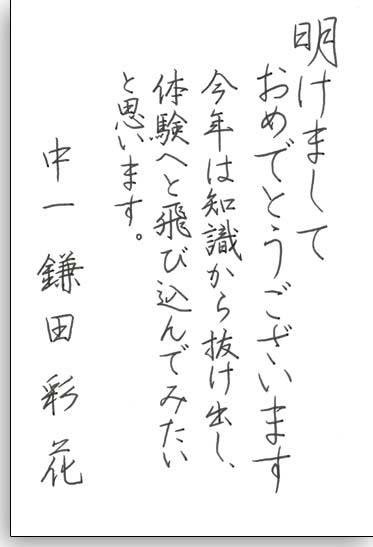 明けまして
おめでとうございます
今年は知識から抜け出し、
体験へと飛び込んでみたい
と思います。
中一 鎌田彩花